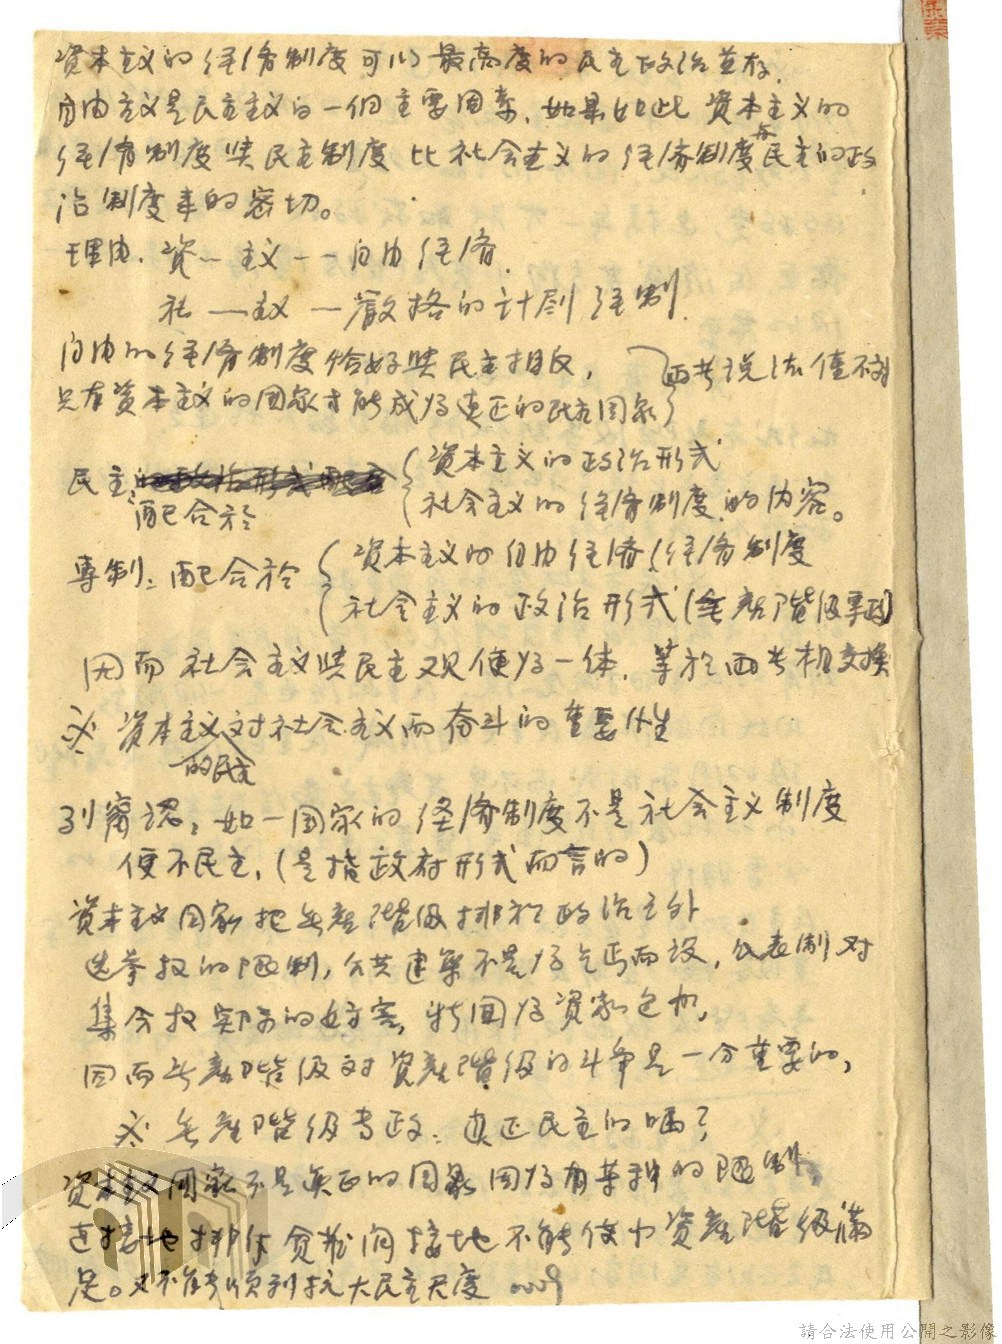 資本主义的经济制度可以最高度的民主政治並存.
自由主义是民主主义的一個主要因素.如果如此 資本主义的
经济制度與民主制度 比社会主义的 经济制度與民主的政
治制度来的密切。
理由.資--主义--自由经济.
社—主义—嚴格的计劃经制
自由的经济制度恰好與民主相反,
两者说法僅不对
只有資本主义的国家才能成为真正的民主国家
民主
配合於
資本主义的政治形式
社会主义的经济制度的内容。
專制:配合於
資本主义的自由经济(经济制度
社会主义的政治形式(無產階级專政)
因而社会主义與民主义只便为一体.等於两者相交換
※ 資本主义对社会主义而奋斗的重要性
的民主
列寧认:如一国家的经济制度不是社会主义制度
便不民主.(是指政府形式而言的)
資本主义国家把無產階级排於政治之外
选举权的限制,公共建築不是为乞丐而设,代表制对
集会权契的妨害,新聞为資家包办.
因而無產階级对資產階级的斗争是一分重要的,
※ 無產階级专政:真正民主的嗎?
資本主义国家不是真正的国家因为有某种的限制,
直接地排斥貧农间接地不能使中資產階级滿
足。又不能順利扩大民主尺度
請合法使用公開之影像